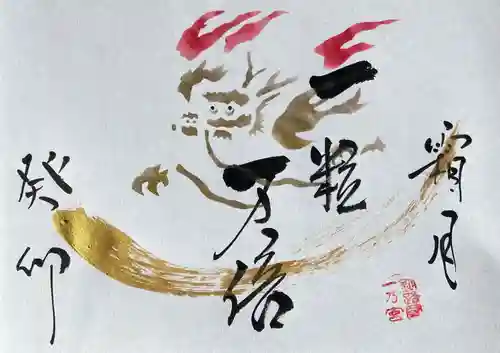 霜月
一粒
万倍
癸卯
一乃宮